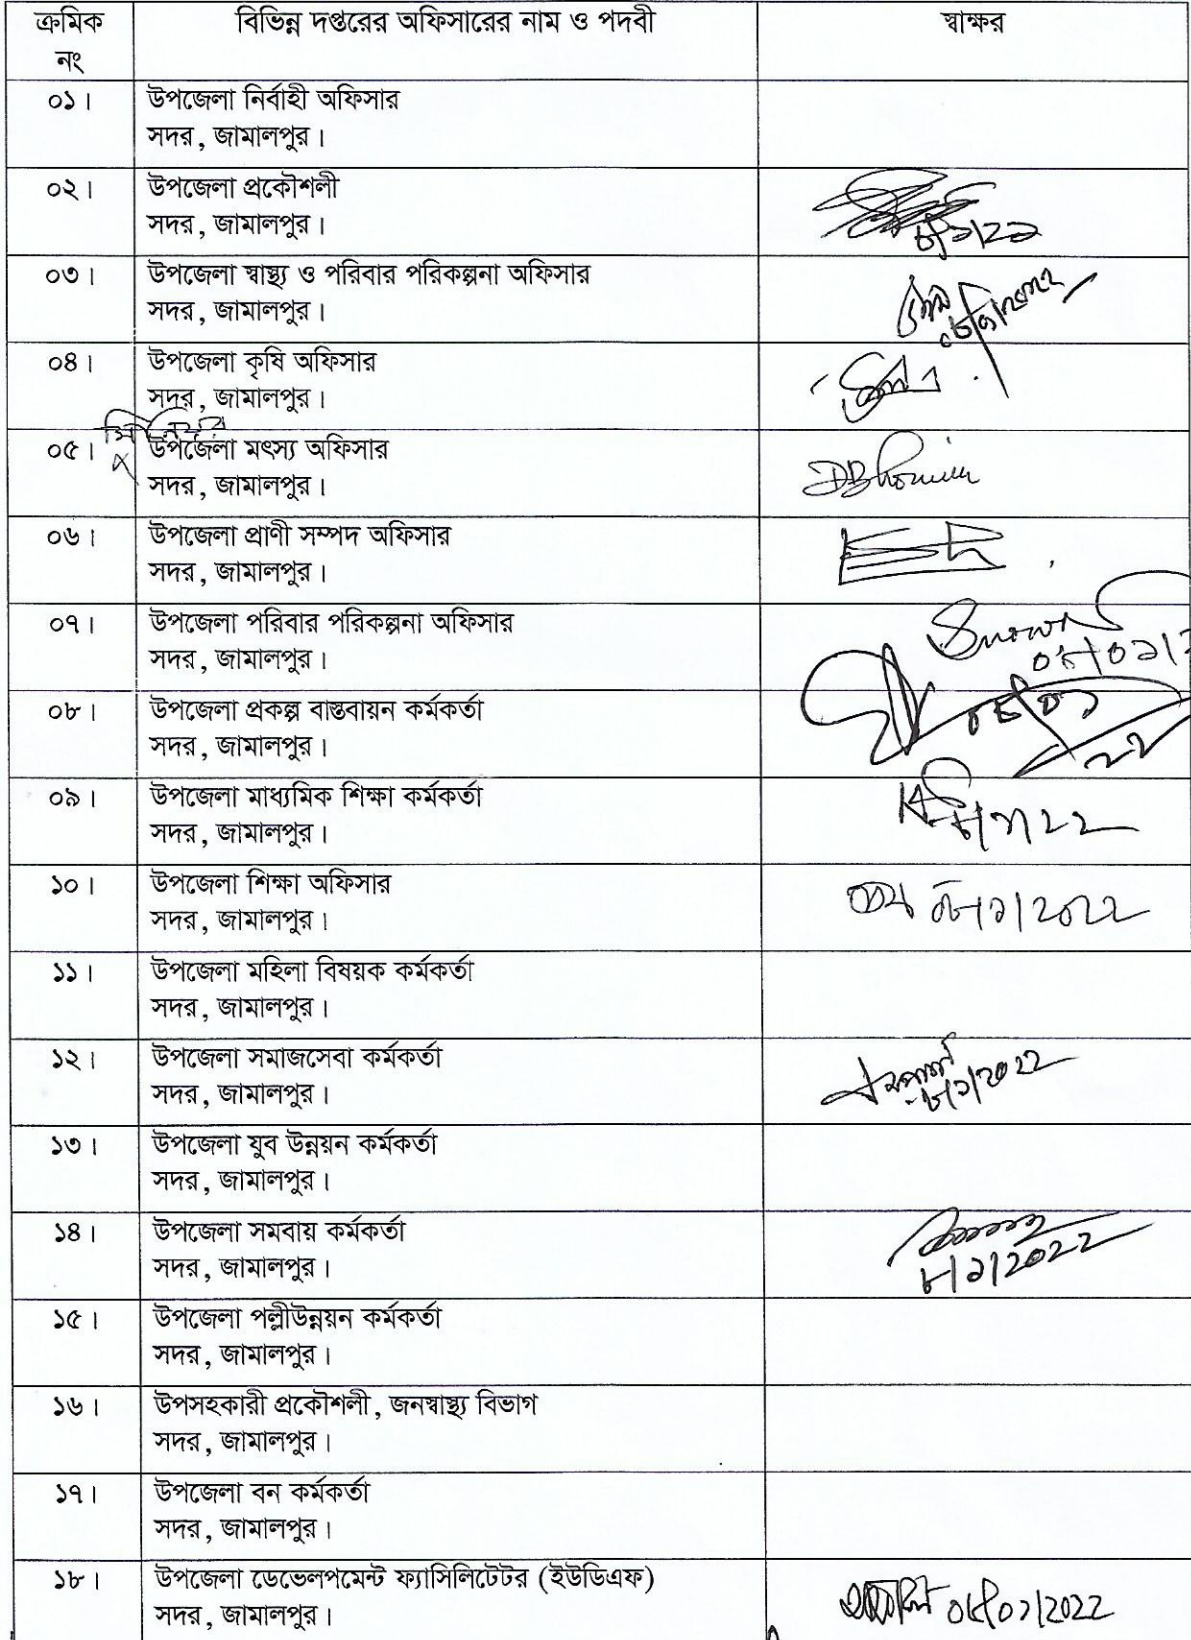 ক্রমিক নং	বিভিন্ন দপ্তরের অফিসারের নাম ও পদবী	স্বাক্ষর
০১।	উপজেলা নির্বাহী অফিসার
সদর, জামালপুর।
০২।	উপজেলা প্রকৌশলী
সদর, জামালপুর।	৮/১/২২
০৩।	উপজেলা স্বাস্থ্য ও পরিবার পরিকল্পনা অফিসার
সদর, জামালপুর।
০৪।	উপজেলা কৃষি অফিসার
সদর, জামালপুর।
০৫।	সিনিয়র উপজেলা মৎস্য অফিসার
সদর, জামালপুর।
০৬।	উপজেলা প্রাণী সম্পদ অফিসার
সদর, জামালপুর।
০৭।	উপজেলা পরিবার পরিকল্পনা অফিসার
সদর, জামালপুর।
০৮।	উপজেলা প্রকল্প বাস্তবায়ন কর্মকর্তা
সদর, জামালপুর।
০৯।	উপজেলা মাধ্যমিক শিক্ষা কর্মকর্তা
সদর, জামালপুর।
১০।	উপজেলা শিক্ষা অফিসার
সদর, জামালপুর।
১১।	উপজেলা মহিলা বিষয়ক কর্মকর্তা
সদর, জামালপুর।
১২।	উপজেলা সমাজসেবা কর্মকর্তা
সদর, জামালপুর।
১৩।	উপজেলা যুব উন্নয়ন কর্মকর্তা
সদর, জামালপুর।
১৪।	উপজেলা সমবায় কর্মকর্তা
সদর, জামালপুর।	৮/১/২০২২
১৫।	উপজেলা পল্লীউন্নয়ন কর্মকর্তা
সদর, জামালপুর।
১৬।	উপসহকারী প্রকৌশলী, জনস্বাস্থ্য বিভাগ
সদর, জামালপুর।
১৭।	উপজেলা বন কর্মকর্তা
সদর, জামালপুর।
১৮।	উপজেলা ডেভেলপমেন্ট ফ্যাসিলিটেটর (ইউডিএফ)
সদর, জামালপুর।	০৮/০১/২০২২